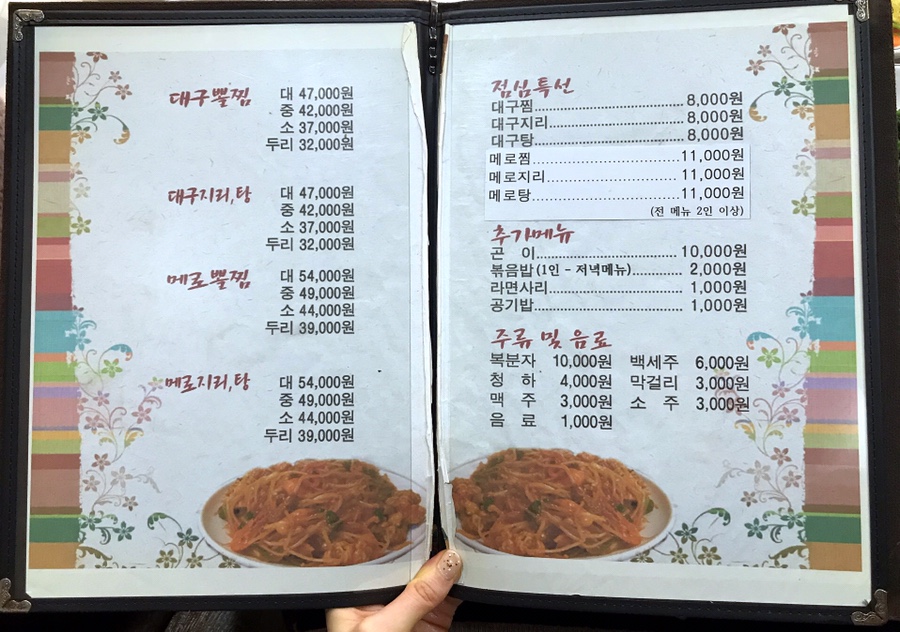 대구뽈찜 대 47,000원
중 42,000원
소 37,000원
두리 32,000원
대구지리,탕 대 47,000원
중 42,000원
소 37,000원
두리 32,000원
메로뽈찜 대 54,000원
중 49,000원
소 44,000원
두리 39,000원
메로지리,탕 대 54,000원
중 49,000원
소 44,000원
두리 39,000원
점심특선
대구찜 8,000원
대구지리 8,000원
대구탕 8,000원
메로찜 11,000원
메로지리 11,000원
메로탕 11,000원
(전 메뉴 2인 이상)
추가메뉴
곤 이 10,000원
볶음밥(1인 - 저녁메뉴) 2,000원
라면사리 1,000원
공기밥 1,000원
주류 및 음료
복분자 10,000원 백세주 6,000원
청 하 4,000원 막걸리 3,000원
맥 주 3,000원 소 주 3,000원
음 료 1,000원